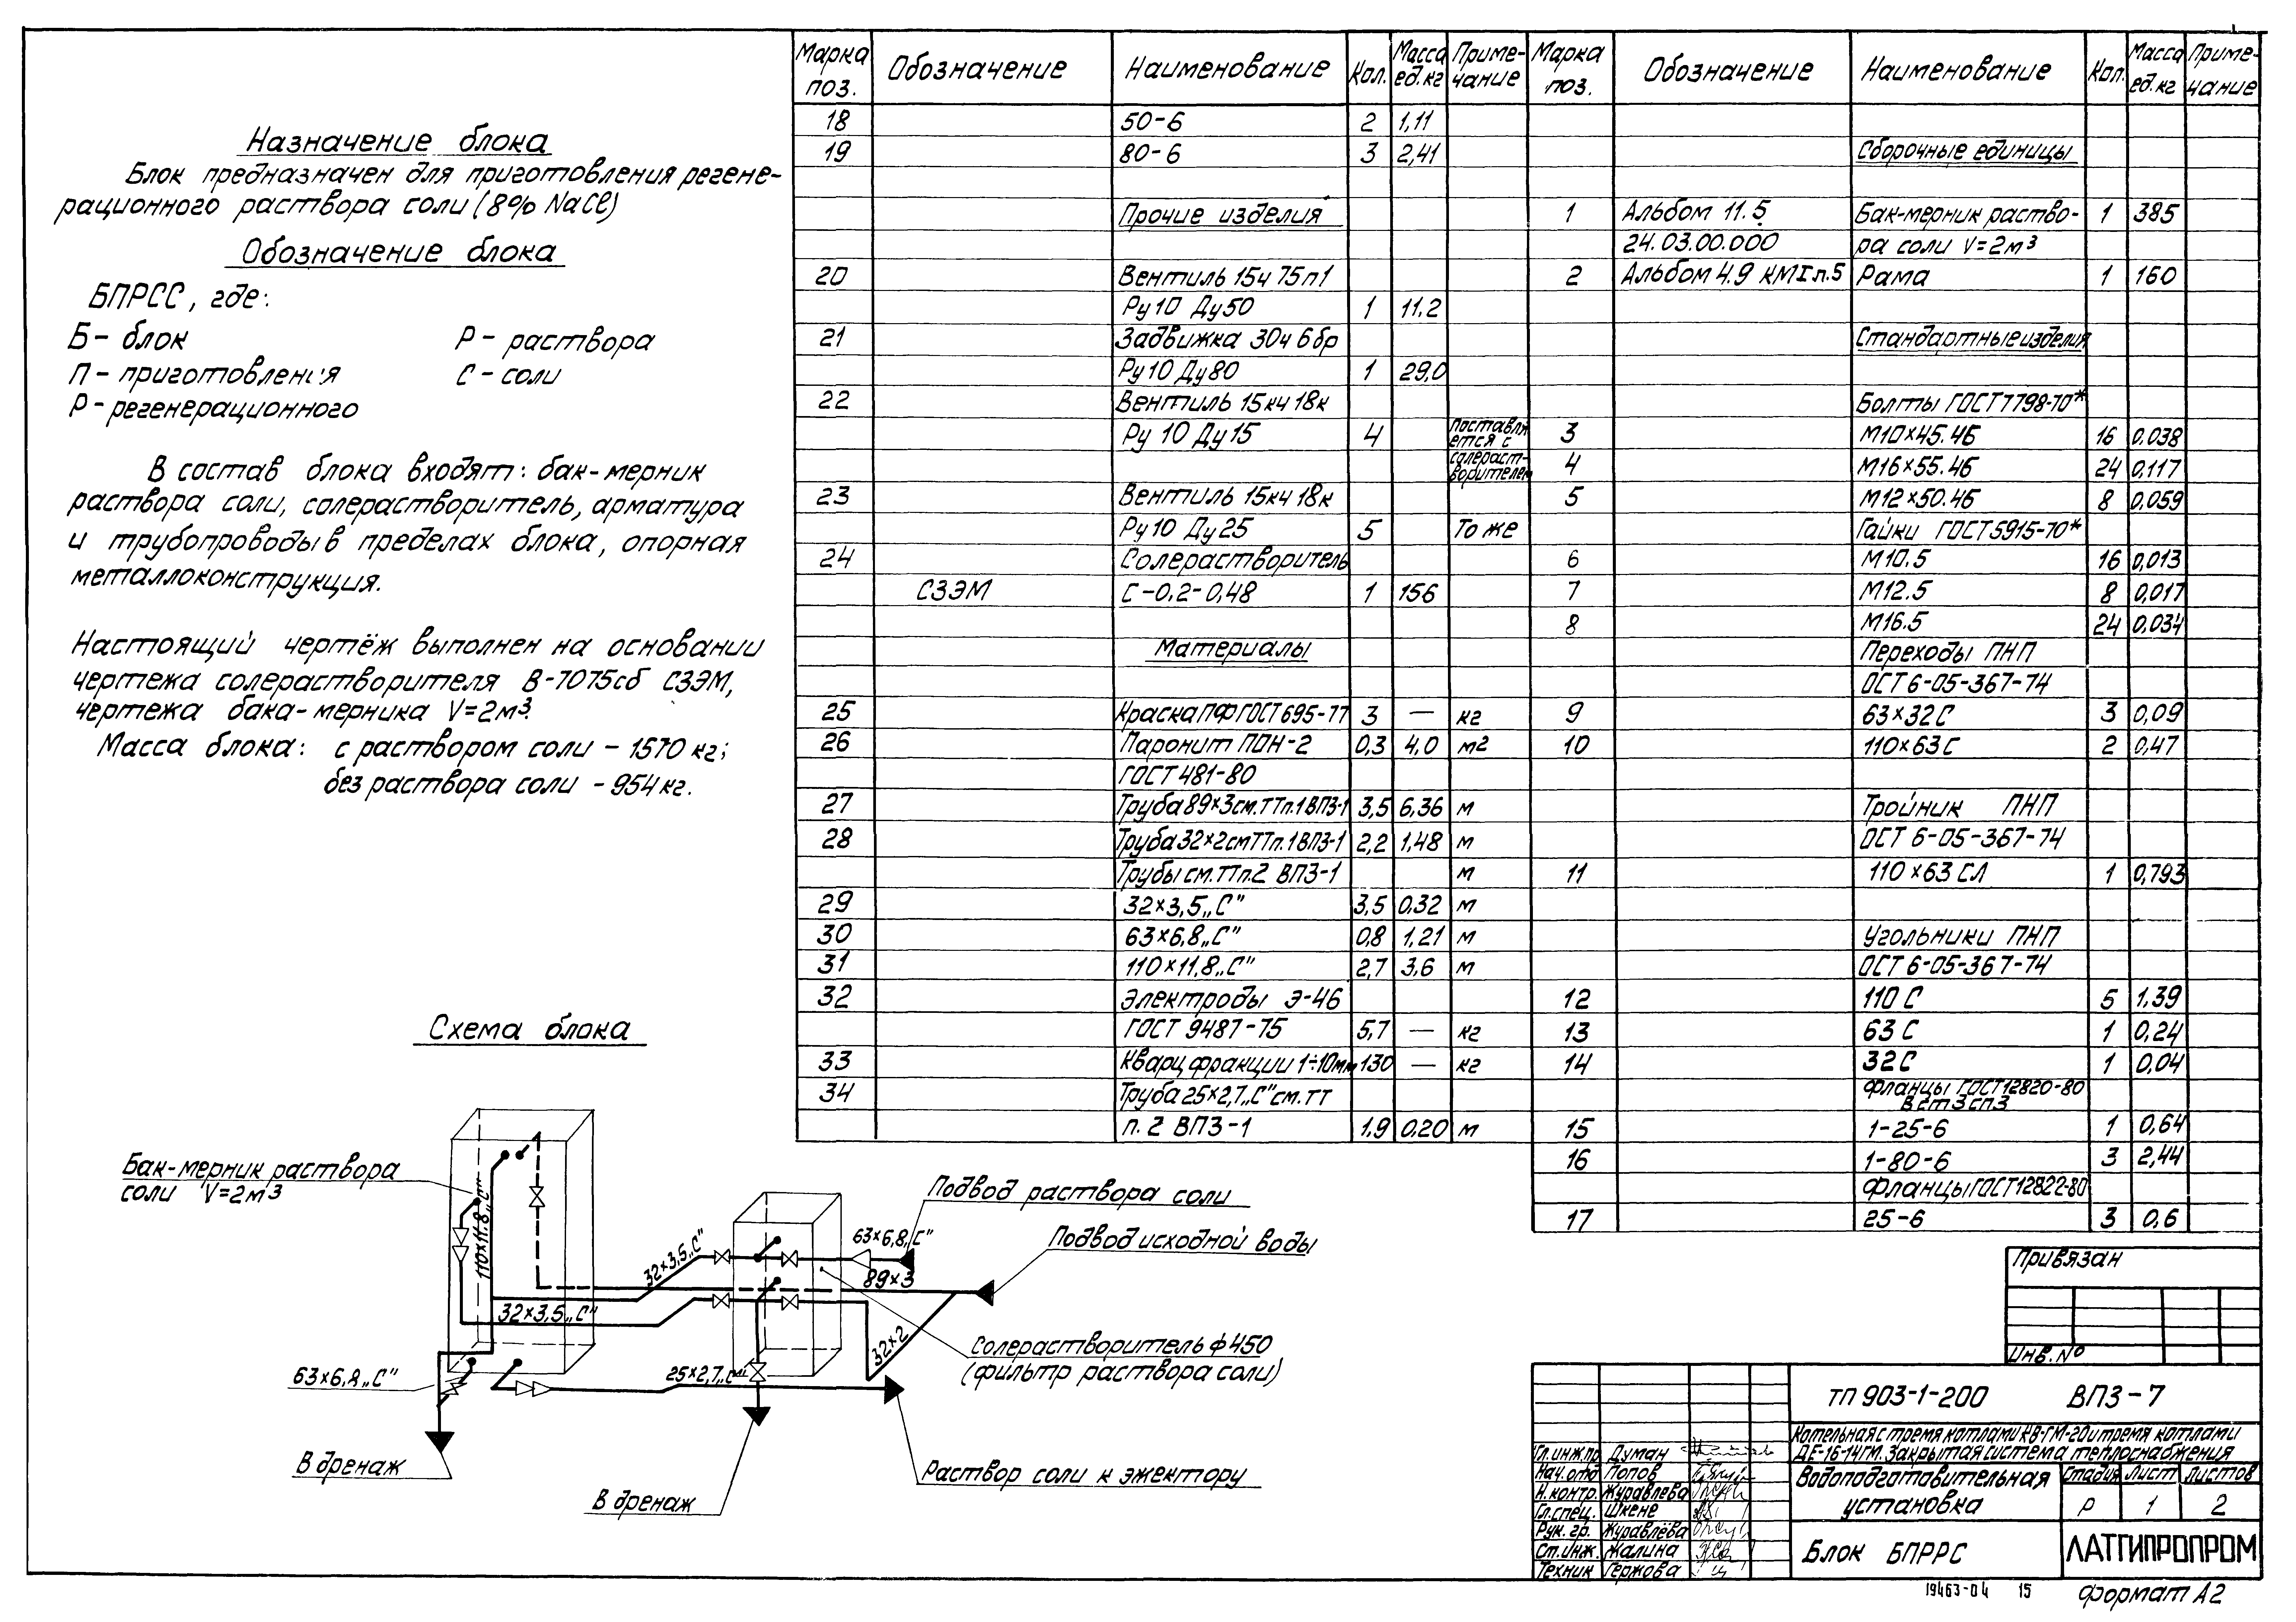 Назначение блока
Блок предназначен для приготовления регене-
рационного раствора соли (8% NaCl)
Обозначение блока
БПРСС, где:
Б - блок Р - раствора
П - приготовления С - соли
Р - регенерационного
В состав блока входят: бак-мерник
раствора соли, солерастворитель, арматура
и трубопроводы в пределах блока, опорная
металлоконструкция.
Настоящий чертёж выполнен на основании
чертежа солерастворителя В-7075сб СЗЭМ,
чертежа бака-мерника V=2м³.
Масса блока: с раствором соли - 1570 кг;
без раствора соли - 954 кг.
Схема блока
Бак-мерник раствора
соли V=2м³
110×11.8„С"
32×3,5„С"
32×3,5„С"
63×6,8„С"
89×3
32×2
25×2,7„С"
63×6,8„С"
Подвод раствора соли
Подвод исходной воды
Солерастворитель ф450
(фильтр раствора соли)
Раствор соли к эжектору
В дренаж
В дренаж
Марка поз. Обозначение Наименование Кол. Масса ед. кг Приме-чание
18 50-6 2 1,11
19 80-6 3 2,41
Прочие изделия
20 Вентиль 15ч 75п1
Ру10 Ду50 1 11.2
21 Задвижка 30ч 6бр
Ру10 Ду80 1 29,0
22 Вентиль 15кч 18к
Ру 10 Ду 15 4 Поставля-ется с солераст-ворителем
23 Вентиль 15кч 18к
Ру10 Ду25 5 То же
24 Солерастворитель
СЗЭМ С-0,2-0,48 1 156
Материалы
25 Краска ПФ ГОСТ 695-77 3 — кг
26 Паронит ПОН-2 0,3 4,0 м²
ГОСТ 481-80
27 Труба 89×3 см. ТТп.1 ВПЗ-1 3,5 6,36 м
28 Труба 32×2 см ТТп.1 ВПЗ-1 2,2 1,48 м
Трубы см. ТТп.2 ВПЗ-1 м
29 32×3,5„С" 3,5 0,32 м
30 63×6,8„С" 0,8 1,21 м
31 110×11,8„С" 2,7 3,6 м
32 Электроды Э-46
ГОСТ 9487-75 5,7 — кг
33 Кварц фракции 1÷10мм 130 — кг
34 Труба 25×2,7„С" см. ТТ
п. 2 ВПЗ-1 1,9 0.20 м
Марка поз. Обозначение Наименование Кол. Масса ед. кг Приме-чание
Сборочные единицы
1 Альбом 11.5 Бак-мерник раство- 1 385
24.03.00.000 ра соли V=2м³
2 Альбом 4.9 КМI л.5 Рама 1 160
Стандартные изделия
Болты ГОСТ 7798-70*
3 М10×45.46 16 0,038
4 М16×55.46 24 0,117
5 М12×50.46 8 0,059
Гайки ГОСТ 5915-70*
6 М10.5 16 0,013
7 М12.5 8 0,017
8 М16.5 24 0,034
Переходы ПНП
ОСТ 6-05-367-74
9 63×32С 3 0,09
10 110×63С 2 0,47
Тройник ПНП
ОСТ 6-05-367-74
11 110×63 СЛ 1 0,793
Угольники ПНП
ОСТ 6-05-367-74
12 110 С 5 1,39
13 63 С 1 0,24
14 32С 1 0,04
Фланцы ГОСТ 12820-80
В ст 3 сп3
15 1-25-6 1 0,64
16 1-80-6 3 2,44
Фланцы ГОСТ 12822-80
17 25-6 3 0,6
Привязан
Инв. №
ТП 903-1-200 ВПЗ-7
Котельная с тремя котлами КВ-ГМ-20 и тремя котлами
ДЕ-16-14ГМ. Закрытая система теплоснабжения
Гл. инж. пр. Думан
Нач. отд Попов
Н. контр. Журавлева
Гл. спец. Шкене
Рук. гр. Журавлёва
Ст. инж. Жалина
Техник Гержова
Водоподготовительная
установка
Стадия Лист Листов
Р 1 2
Блок БПРРС
ЛАТГИПРОПРОМ
19463-04 15
формат А2